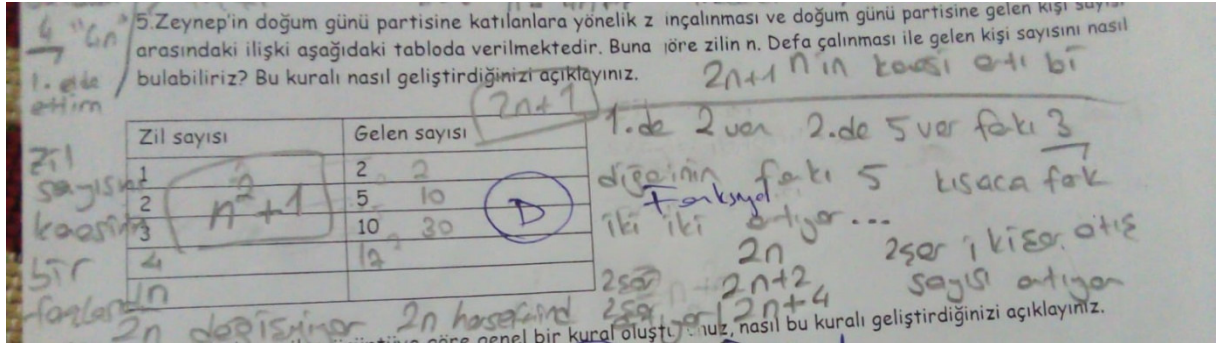 4 "4n"
5.Zeynep'in doğum günü partisine katılanlara yönelik z inçalınması ve doğum günü partisine gelen kişi sayısı
arasındaki ilişki aşağıdaki tabloda verilmektedir. Buna göre zilin n. Defa çalınması ile gelen kişi sayısını nasıl
bulabiliriz? Bu kuralı nasıl geliştirdiğinizi açıklayınız.
1. elde
ettim
2n+1 n'in karesi artı bi
2n+1
Zil sayısı Gelen sayısı
1 2 2
2 5 10
3 10 30
4 17
n²+1
D
Zil
sayısının
karesinin
bir
fazlasından
1.de 2 var 2.de 5 var farkı 3
diğerinin farkı 5 kısaca fark
Fonksiyonel
iki iki artıyor...
2n 2şer ikişer artış
2şer 2n+2 sayısı artıyor
2şer 2n+4
2n değişmiyor 2n
göre genel bir kural oluşturunuz, nasıl bu kuralı geliştirdiğinizi açıklayınız.